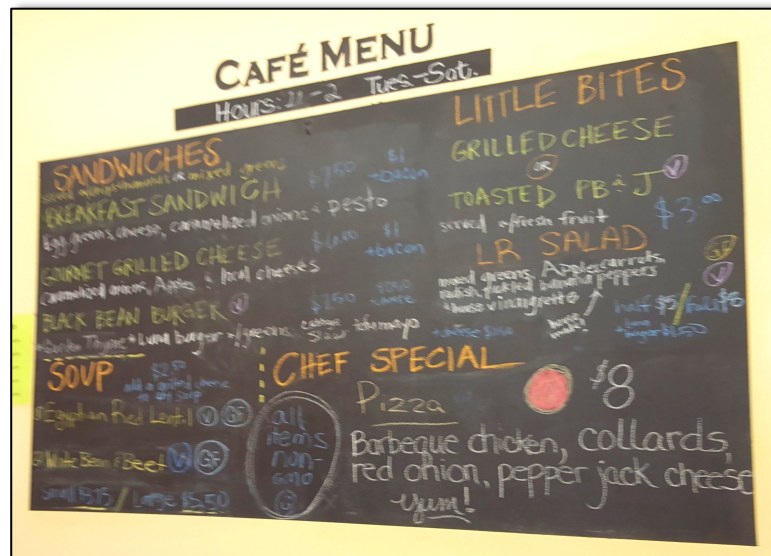 CAFÉ MENU
Hours: 11-2 Tues.-Sat.
SANDWICHES
mixed greens
BREAKFAST SANDWICH $7.50 $1 +bacon
Egg, greens, cheese, caramelized onions & pesto
GOURMET GRILLED CHEESE $6.00 $1 +bacon
Caramelized onions, Apples & local cheeses
BLACK BEAN BURGER V $7.50
Thyme Luna burger w/greens,
+cheese
SOUP $2.50
add a grilled cheese
to any soup
Egyptian Red Lentil V GF
White Bean & Beet V GF
Small / Large $5.50
LITTLE BITES
GRILLED CHEESE
OR
TOASTED PB & J V
served w/fresh fruit $3.00
LR SALAD GF
mixed greens, Apples, carrots, V
radish, pickled banana peppers
+house vinaigrette
house made
half $5/Full $8
+Luna burger
CHEF SPECIAL
all
items
non-
GMO
Pizza $8
Barbeque chicken, collards,
red onion, pepper jack cheese
yum!